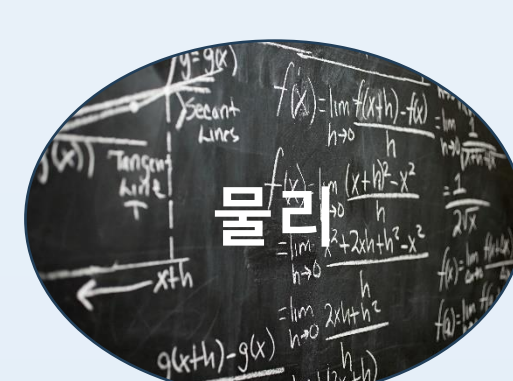 y=g(x)
Secant
Lines
Tangent
Line
x+h
g(x+h)-g(x)
f'(x)=lim h→0 f(x+h)-f(x) / h
f'(x)=lim h→0 (x+h)²-x² / h
=lim h→0 x²+2xh+h²-x² / h
=lim h→0 2xh+h² / h
=1 / 2√x
물리